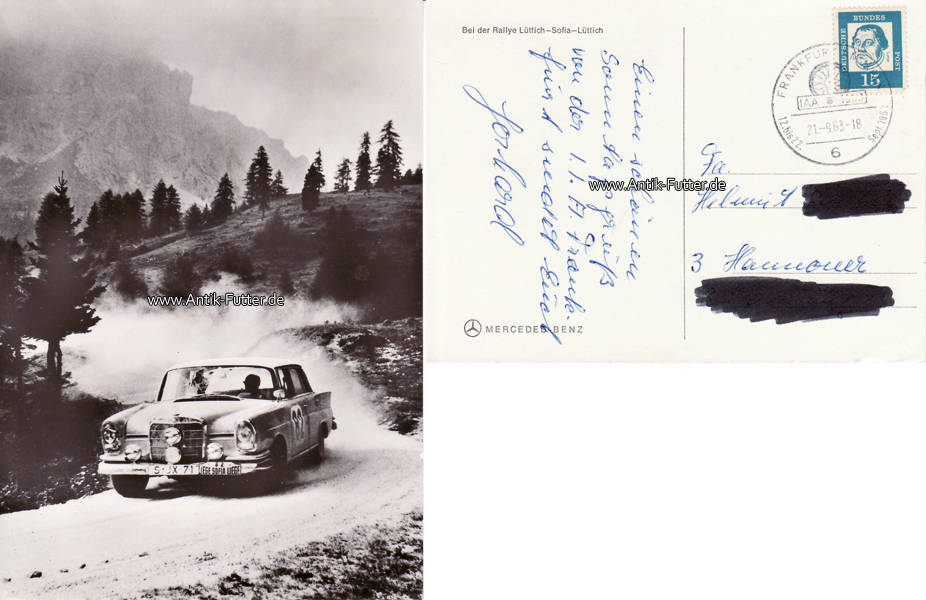 www.Antik-Futter.de
S-JX 71
LIEGE SOFIA LIEGE
Bei der Rallye Lüttich–Sofia–Lüttich
Einen schönen
Sonntagsgruß
von der I.A.A. Frank-
furt sendet Euch
MERCEDES-BENZ
DEUTSCHE BUNDESPOST
15
FRANKFURT
IAA
12. bis 22. Sept. 1963
21.-9.63-18
6
www.Antik-Futter.de
Fa.
Helmut
3 Hannover